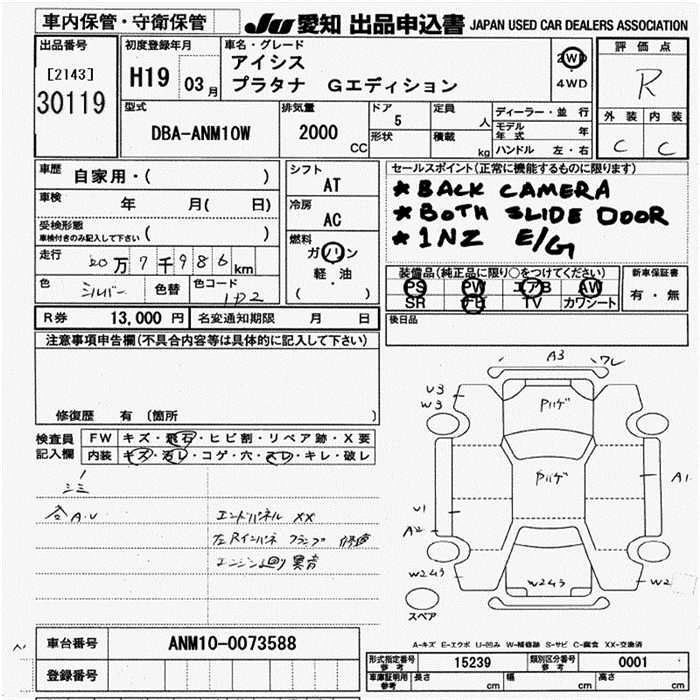 車内保管・守衛保管
JU 愛知 出品申込書 JAPAN USED CAR DEALERS ASSOCIATION
出品番号
[2143]
30119
初度登録年月
H19 03月
車名・グレード
アイシス
プラタナ Gエディション
2WD
4WD
評価点
R
外装 内装
C C
型式
DBA-ANM10W
排気量
2000
CC
ドア
5
形状
定員
人
積載
kg
ディーラー・並行
モデル年式 年
ハンドル 左・右
車歴
自家用・( )
車検
年 月( 日)
受検形態
車検付きのみ記入して下さい ( )
走行
20万7千986km
色
シルバー
色替
色コード
1D2
シフト
AT
冷房
AC
燃料
ガソリン
軽・油
( )
セールスポイント(正常に機能するものに限ります)
* BACK CAMERA
* BOTH SLIDE DOOR
* 1NZ E/G
装備品(純正品に限り○をつけてください)
PS PW エアB AW
SR ナビ TV カワシート
新車保証書
有・無
R券 13,000 円
名変通知期限 月 日
後日品
注意事項申告欄(不具合内容等は具体的に記入して下さい)
修復歴 有 (箇所 )
検査員
記入欄
FW キズ・飛石・ヒビ割・リペア跡・X要
内装 キズ・汚レ・コゲ・穴・スレ・キレ・破レ
A.U
エンドパネル XX
左Rインパネ フランプ 修迹
エンジン廻り 異音
A3 ワレ
U3
W3
Pハゲ
Pハゲ
A1
U1
A2
W2 4 3
W2 4 3
W2
スペア
A-キズ E-エクボ U-凹み W-補修跡 S-サビ C-腐食 XX-交換済
車台番号 ANM10-0073588
登録番号
形式指定番号
参考
15239
類別区分番号
参考
0001
車庫証明用
参考
長さ cm
幅 cm
高さ cm